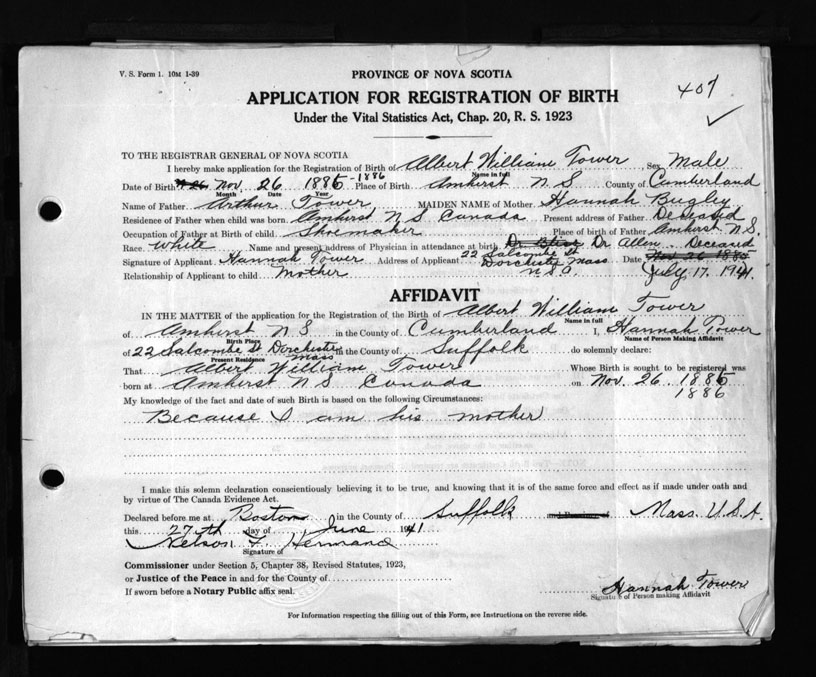 V. S. Form 1. 10M 1-39
PROVINCE OF NOVA SCOTIA
407
APPLICATION FOR REGISTRATION OF BIRTH
Under the Vital Statistics Act, Chap. 20, R. S. 1923
TO THE REGISTRAR GENERAL OF NOVA SCOTIA
I hereby make application for the Registration of Birth of Albert William Tower Sex Male
Name in full
Date of Birth Nov. 26 1885 -1886 Place of Birth Amherst N S County of Cumberland
Month Date Year
Name of Father Arthur Tower MAIDEN NAME of Mother Hannah Bugley
Residence of Father when child was born Amherst N S Canada Present address of Father Deceased
Occupation of Father at Birth of child Shoemaker Place of birth of Father Amherst N.S.
Race White Name and present address of Physician in attendance at birth Dr Bliss Dr Allen Deceased
Signature of Applicant Hannah Tower Address of Applicant 22 Salcombe St Dorchester Mass Date Nov 26 1885
Relationship of Applicant to child Mother July 17. 1941.
AFFIDAVIT
IN THE MATTER of the application for the Registration of the Birth of Albert William Tower
Name in full
of Amherst N S in the County of Cumberland I, Hannah Tower
Birth Place Name of Person Making Affidavit
of 22 Salcombe St Dorchester Mass in the County of Suffolk do solemnly declare:
Present Residence
That Albert William Tower Whose Birth is sought to be registered was
born at Amherst N S Canada on Nov. 26 1885
1886
My knowledge of the fact and date of such Birth is based on the following Circumstances:
Because I am his mother
I make this solemn declaration conscientiously believing it to be true, and knowing that it is of the same force and effect as if made under oath and
by virtue of The Canada Evidence Act.
Declared before me at Boston in the County of Suffolk Mass. U.S.A.
this 27th day of June 1941
Nelson F. Hermance
Signature of
Commissioner under Section 5, Chapter 38, Revised Statutes, 1923,
or Justice of the Peace in and for the County of
If sworn before a Notary Public affix seal.
Hannah Tower
Signature of Person making Affidavit
For Information respecting the filling out of this Form, see Instructions on the reverse side.